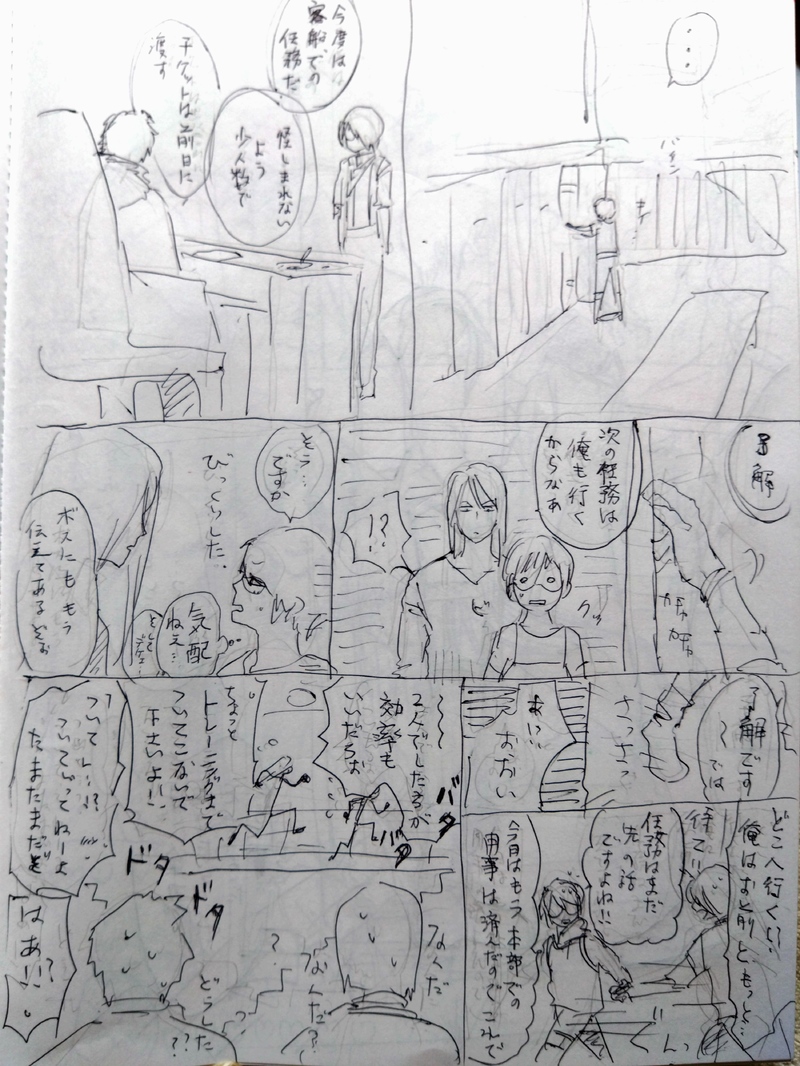 ・・・
バタン
今度は
客船での
任務だ
怪しまれない
よう
少人数で
チケットは前日に
渡す
了解
次の任務は
俺も行く
からなあ
!?
ビ
クッ
そう…
ですか
びっくりした、
気配
ねえ…
ボスにももう
伝えてあるぞぉ
了解です
〜では
さっさっ
おい、
おおい
どこへ行く!?
俺はお前ともっと…
待て!!
任務はまだ
先の話
ですよね!!
今日はもう本部での
用事は済んだのでこれで
2人でしたほうが
効率も
いいだろぉ
バタ
バタ
ちょっと
トレーニングまで
ついてこないで
下さいよ!!
ついて
ついていってねーよ
たまたまだぞ
ドタ
ドタ
なんだ
なんだ?
?
どうした
??
はあ!?